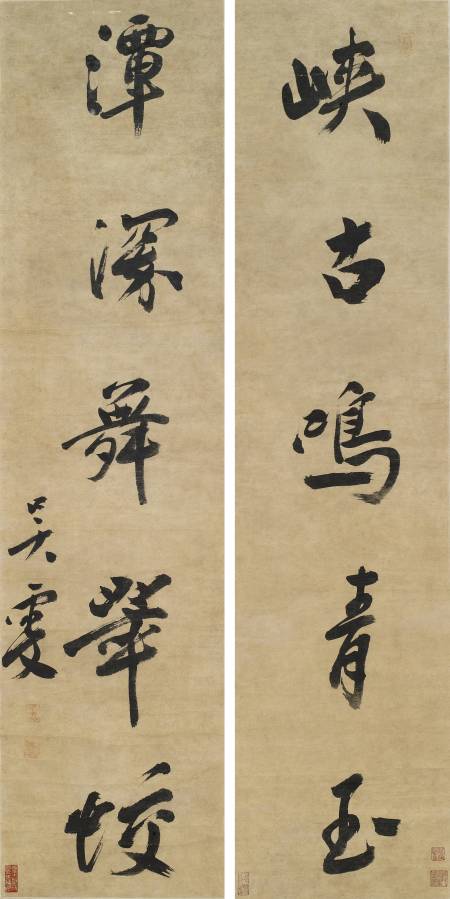 峽古鳴青玉
潭深舞翠蛟
吳雯